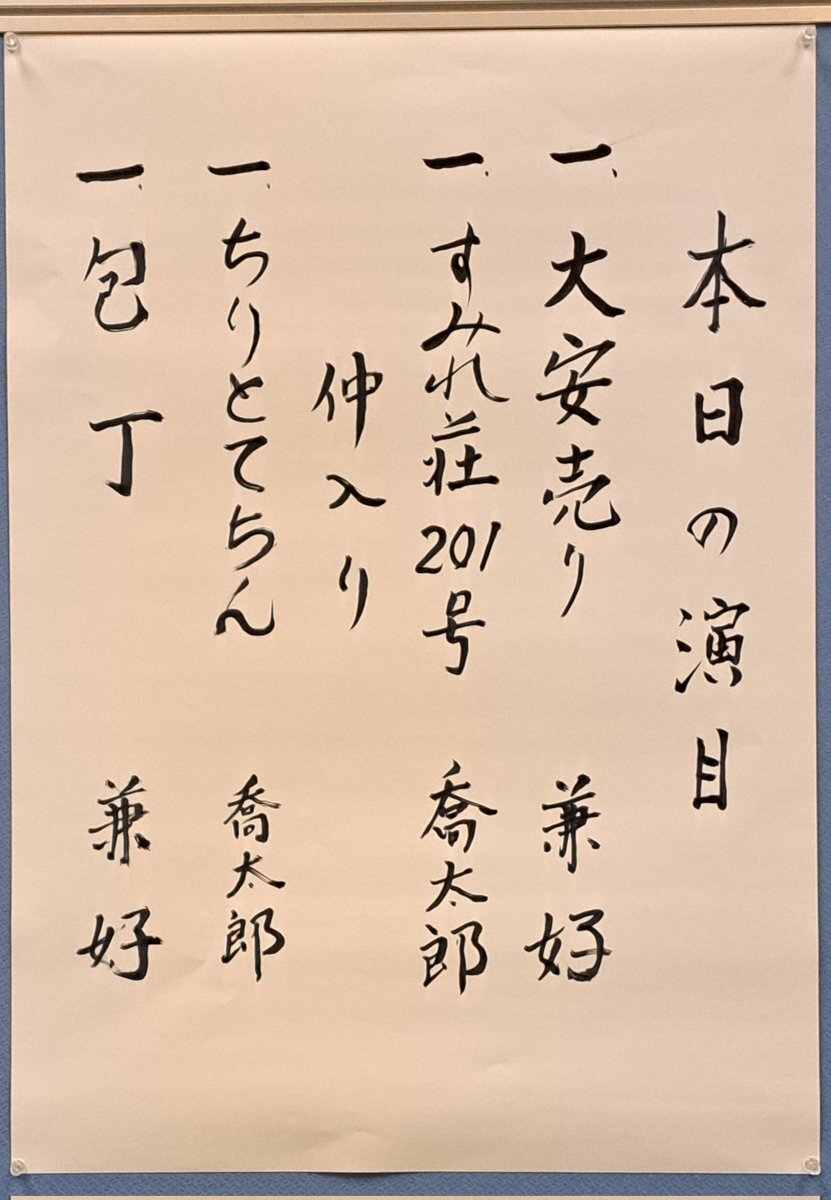 本日の演目
一、大安売り 兼好
一、すみれ荘201号 喬太郎
仲入り
一、ちりとてちん 喬太郎
一、包丁 兼好